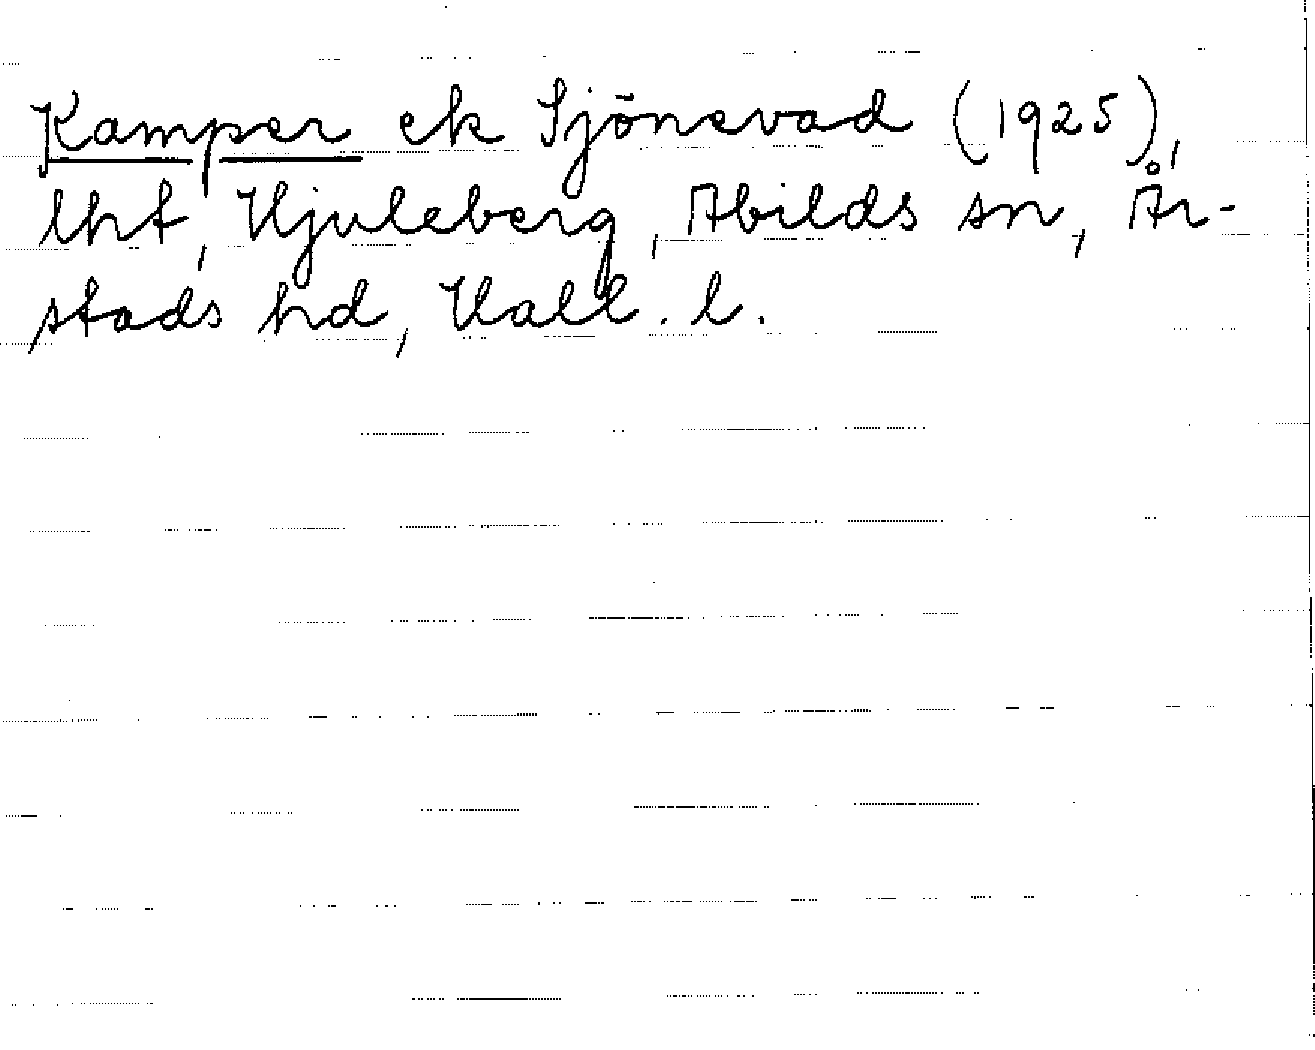 Kamper ek Sjönevad (1925),
lht, Hjuleberg, Abilds sn, År-
stads hd, Hall. l.